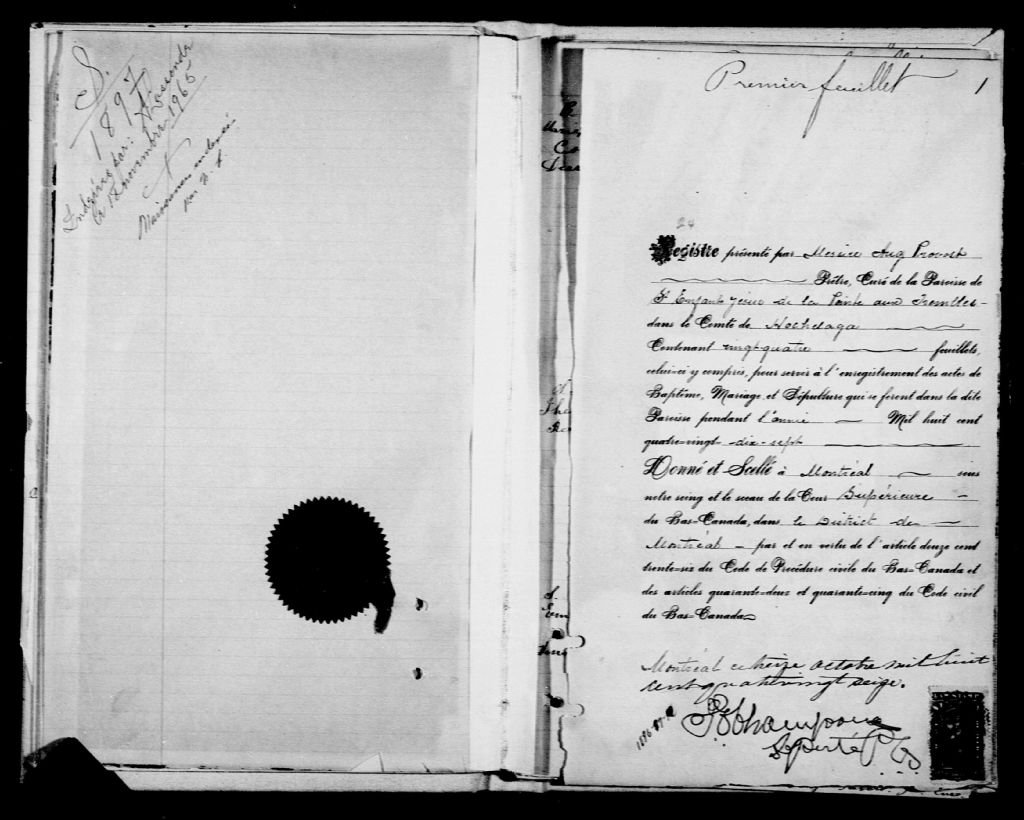 S.
1897
Indexé par:
le 12 novembre 1965
Naissances
par
Premier feuillet
1
24
Registre présenté par Messire Aug Provost
Prêtre, Curé de la Paroisse de
St Enfant Jésus de la Pointe aux Trembles
dans le Comté de Hochelaga
Contenant vingt-quatre feuillets,
celui-ci y compris, pour servir à l'enregistrement des actes de
Baptême, Mariage, et Sépulture qui se feront dans la dite
Paroisse pendant l'année Mil huit cent
quatre=vingt dix-sept
Donné et Scellé à Montréal sous
notre seing et le sceau de la Cour Supérieure
du Bas=Canada, dans le District de
Montréal par et en vertu de l'article douze cent
trente=six du Code de Procédure civile du Bas=Canada et
des articles quarante=deux et quarante=cinq du Code civil
du Bas=Canada
Montréal ce seize octobre mil huit
cent quatrevingt seize.